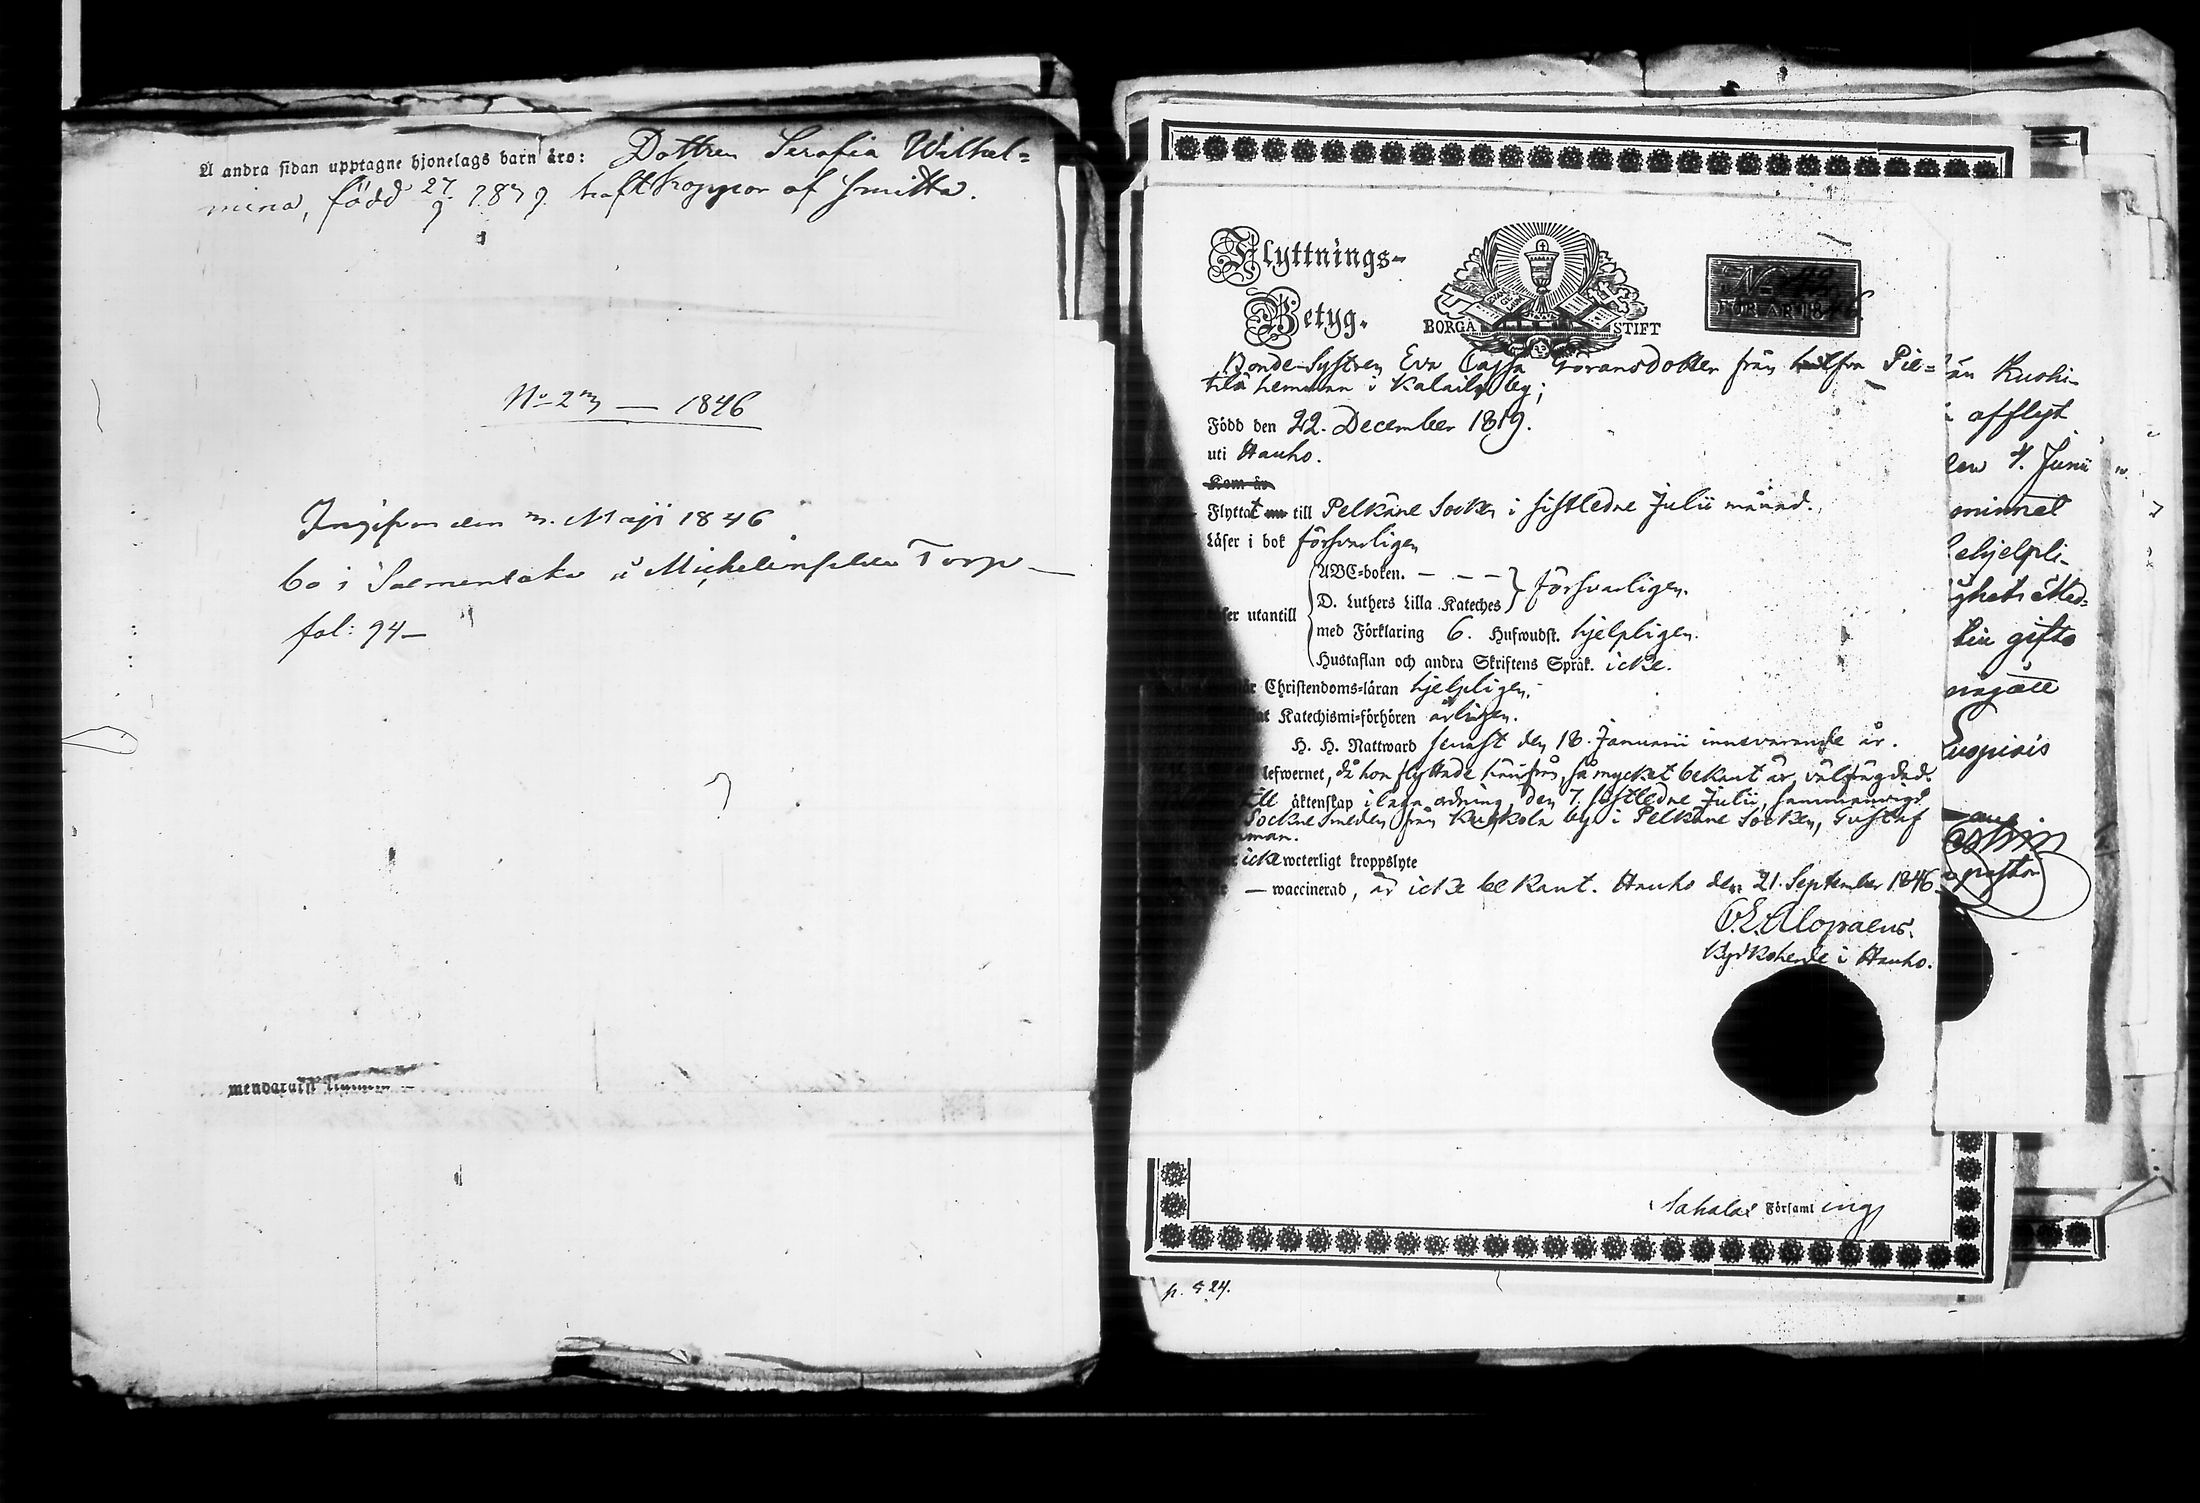 Å andra sidan upptagne hjonelags barn äro: Dottren Serafia Wilhel=
mina, född 27/9 1839. haft koppor af smitta.
No 23 — 1846
Ingifven den 3. Maji 1846
bo i Salmentaka Torp —
fol: 94—
Flyttnings-
Betyg.
BORGÅ STIFT
No
FÖR ÅR 1846.
Bonde-Systren Eva Cajsa Göransdotter från halfva Pie=
tilä hemman i Kalaila by;
Född den 22. December 1819.
uti Hauho.
Kom är
Flyttat till Pelkäne Socken i sistledne Julii månad.
Läser i bok försvarligen
ABC-boken. — — — försvarligen.
D. Luthers Lilla Kateches
utantill
med Förklaring 6. Hufwudst. hjelpligen.
Hustaflan och andra Skriftens Språk. icke.
Christendoms-läran hjelpligen.
Katechismi-förhören årligen.
H. H. Nattward senast den 18. Januarii innevarande år.
lefwernet, då hon flyttade härifrån, så mycket bekant är, välfrägdad.
äktenskap i laga ordning, den 7. sistledne Julii, sammanvigd
Sockne Smeden från Kukkola by i Pelkäne Socken, Gustaf
man.
icke weterligt kroppslyte
— waccinerad, är icke bekant. Hauho den 21. September 1846
Alopaeus.
Kyrkoherde i Hauho.
afflyt
Junii
minnet
ehjelpli-
gifta
Sahalax Församling
p. 524.